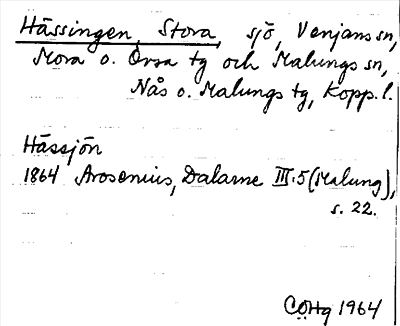 Hässingen, Stora, sjö, Venjans sn,
Mora o. Orsa tg och Malungs sn,
Nås o. Malungs tg, Kopp. l.
Hässjön
1864 Arosenius, Dalarne III.5 (Malung),
s. 22.
CÖHg 1964